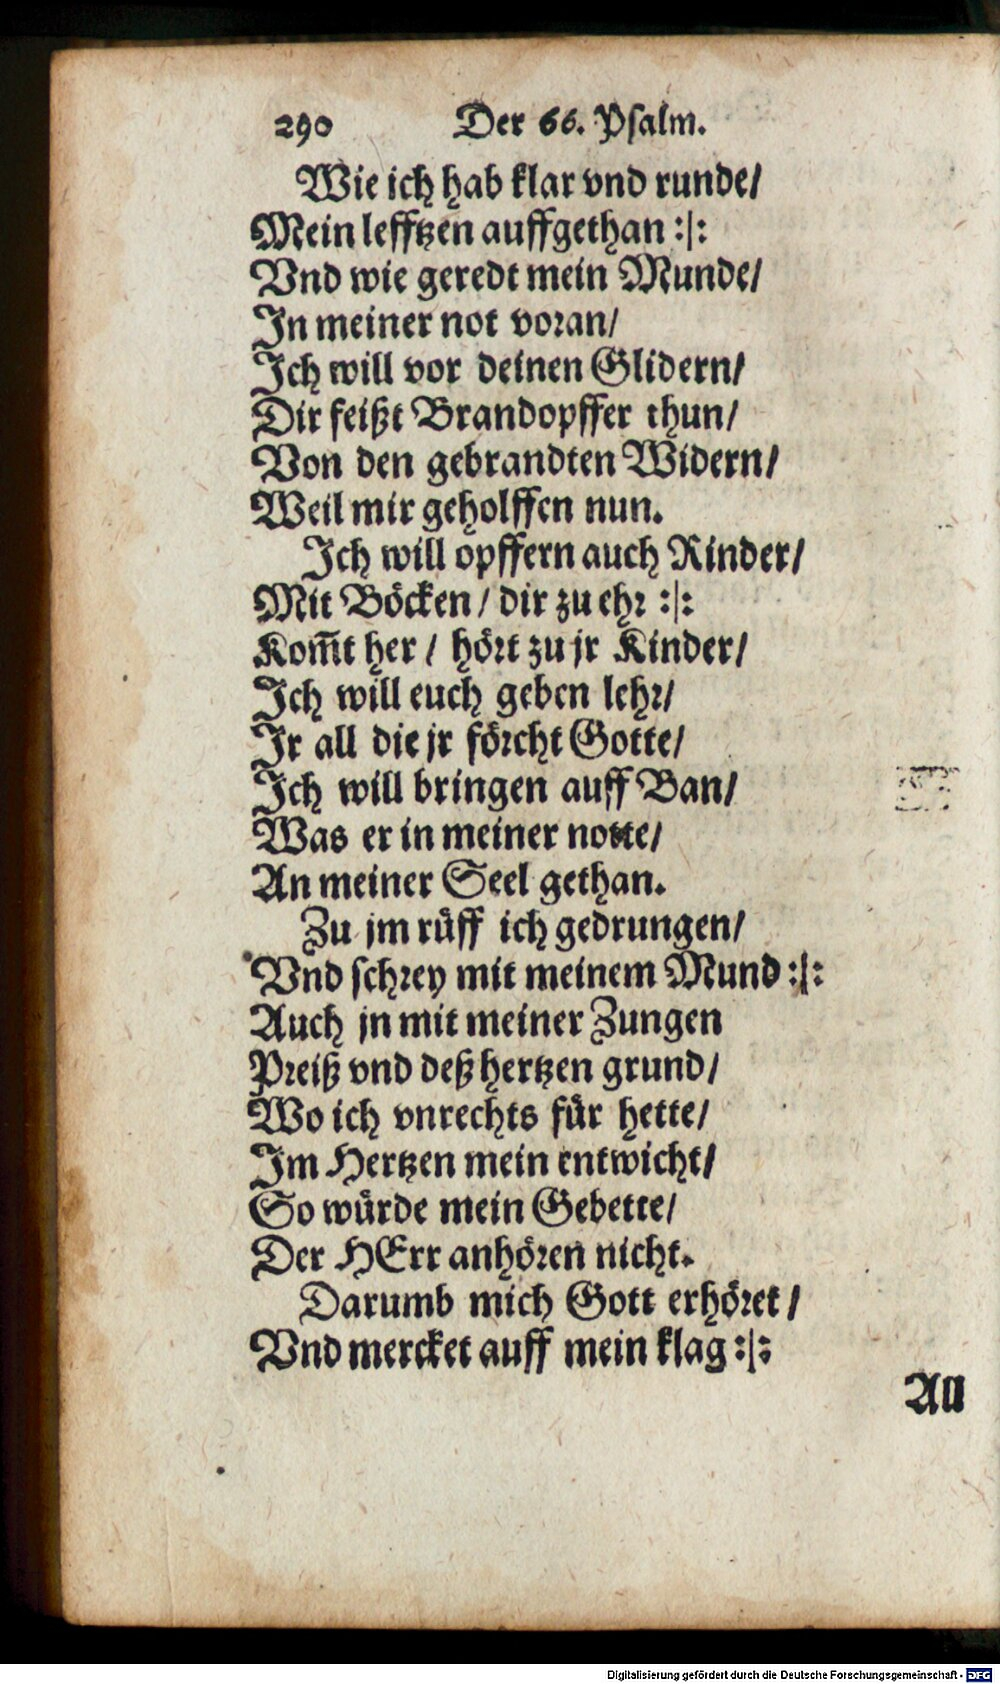 290 Der 66. Psalm.
Wie ich hab klar vnd runde/
Mein lefftzen auffgethan :|:
Vnd wie geredt mein Munde/
In meiner not voran/
Ich will vor deinen Glidern/
Dir feißt Brandopffer thun/
Von den gebrandten Widern/
Weil mir geholffen nun.
Ich will opffern auch Rinder/
Mit Böcken / dir zu ehr :|:
Kom̃t her / hört zu jr Kinder/
Ich will euch geben lehr/
Ir all die jr förcht Gotte/
Ich will bringen auff Ban/
Was er in meiner notte/
An meiner Seel gethan.
Zu jm rüff ich gedrungen/
Vnd schrey mit meinem Mund :|:
Auch jn mit meiner Zungen
Preiß vnd deß hertzen grund/
Wo ich vnrechts für hette/
Im Hertzen mein entwicht/
So würde mein Gebette/
Der HErr anhören nicht.
Darumb mich Gott erhöret /
Vnd mercket auff mein klag :|:
All
Digitalisierung gefördert durch die Deutsche Forschungsgemeinschaft - DFG